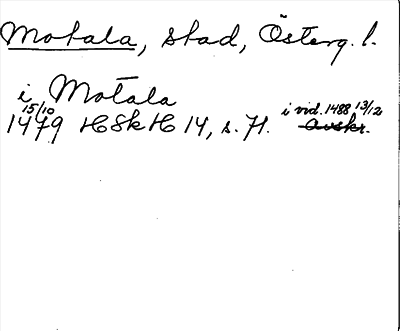 Motala, stad, Österg. l.
i Motala
15/10 i vid. 1488 13/12
1479 HSkH 14, s. 71. Avskr.